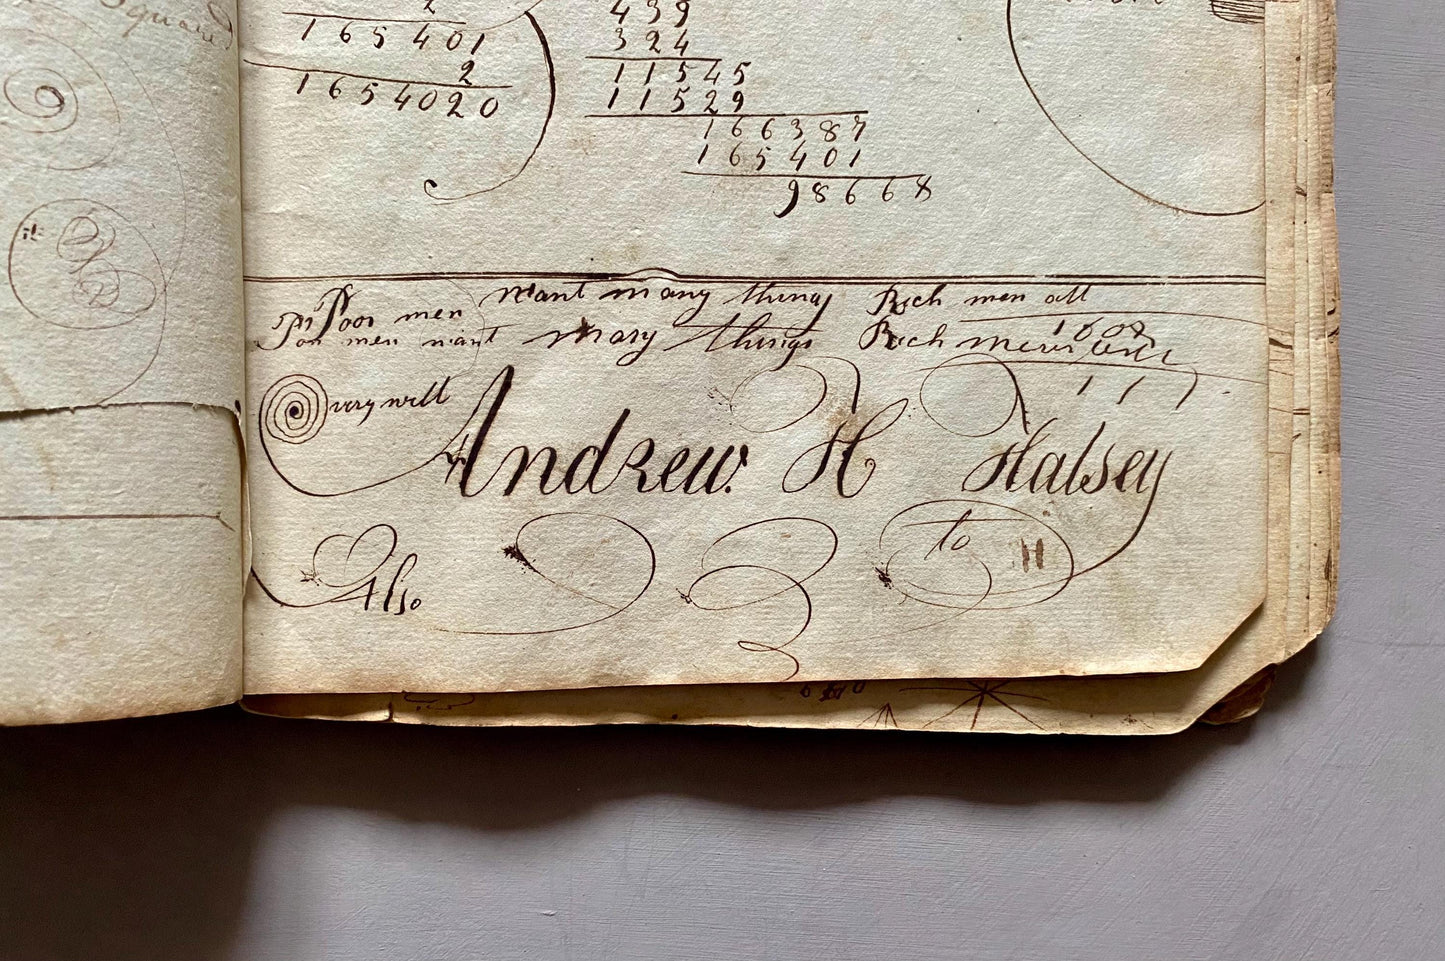 Squared
2
165401
2
1654020
439
324
11545
11529
166387
165401
98668
Poor men want many things Rich men all
Poor men want many things Rich men
Very well
Andrew. H Halsey
to H
Also